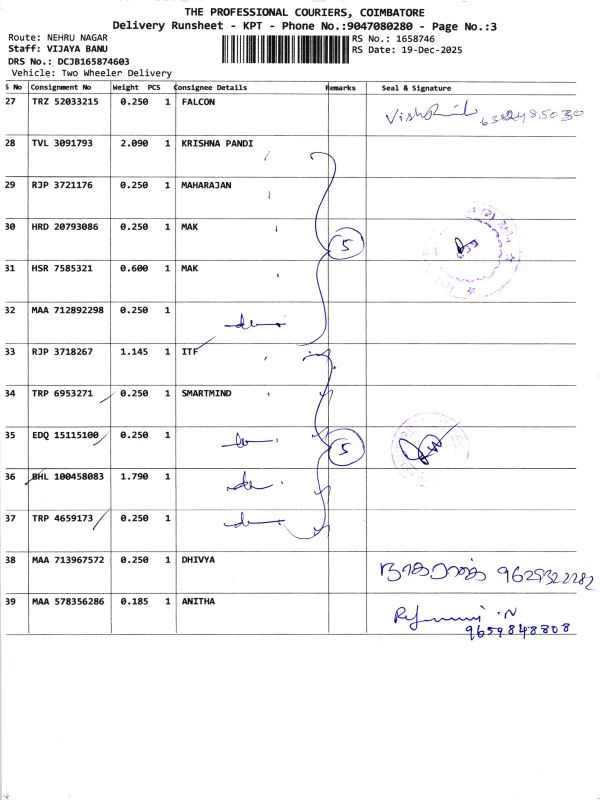 THE PROFESSIONAL COURIERS, COIMBATORE
Delivery Runsheet - KPT - Phone No.:9047080280 - Page No.:3
Route: NEHRU NAGAR
RS No.: 1658746
Staff: VIJAYA BANU
RS Date: 19-Dec-2025
DRS No.: DCJB165874603
Vehicle: Two Wheeler Delivery
S No Consignment No Weight PCS Consignee Details Remarks Seal & Signature
27 TRZ 52033215 0.250 1 FALCON
6382485030
28 TVL 3091793 2.090 1 KRISHNA PANDI
29 RJP 3721176 0.250 1 MAHARAJAN
30 HRD 20793086 0.250 1 MAK 5
31 HSR 7585321 0.600 1 MAK
32 MAA 712892298 0.250 1
33 RJP 3718267 1.145 1 ITF
34 TRP 6953271 0.250 1 SMARTMIND
35 EDQ 15115100 0.250 1 5
36 BHL 100458083 1.790 1
37 TRP 4659173 0.250 1
38 MAA 713967572 0.250 1 DHIVYA
39 MAA 578356286 0.185 1 ANITHA
9659848808